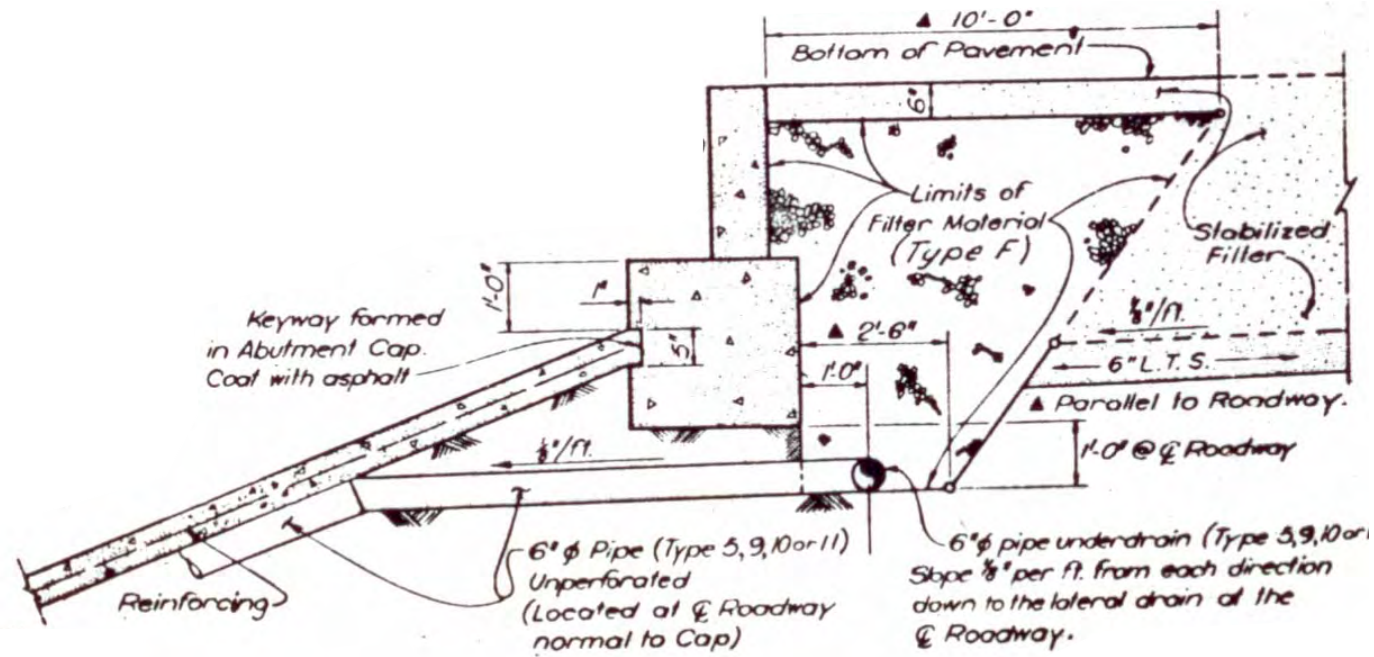 ▲ 10'-0"
Bottom of Pavement
6"
Limits of
Filter Material
(Type F)
Stabilized
Filter
1'-0"
1"
Keyway formed
in Abutment Cap.
Coat with asphalt
5"
▲ 2'-6"
1'-0"
⅛"/ft.
6" L.T.S.
▲ Parallel to Roadway.
⅛"/ft.
1'-0" @ ℄ Roadway
6" ϕ Pipe (Type 5,9,10 or 11)
Unperforated
(Located at ℄ Roadway
normal to Cap)
6" ϕ pipe underdrain (Type 5,9,10 or
Slope ⅛" per ft. from each direction
down to the lateral drain at the
℄ Roadway.
Reinforcing